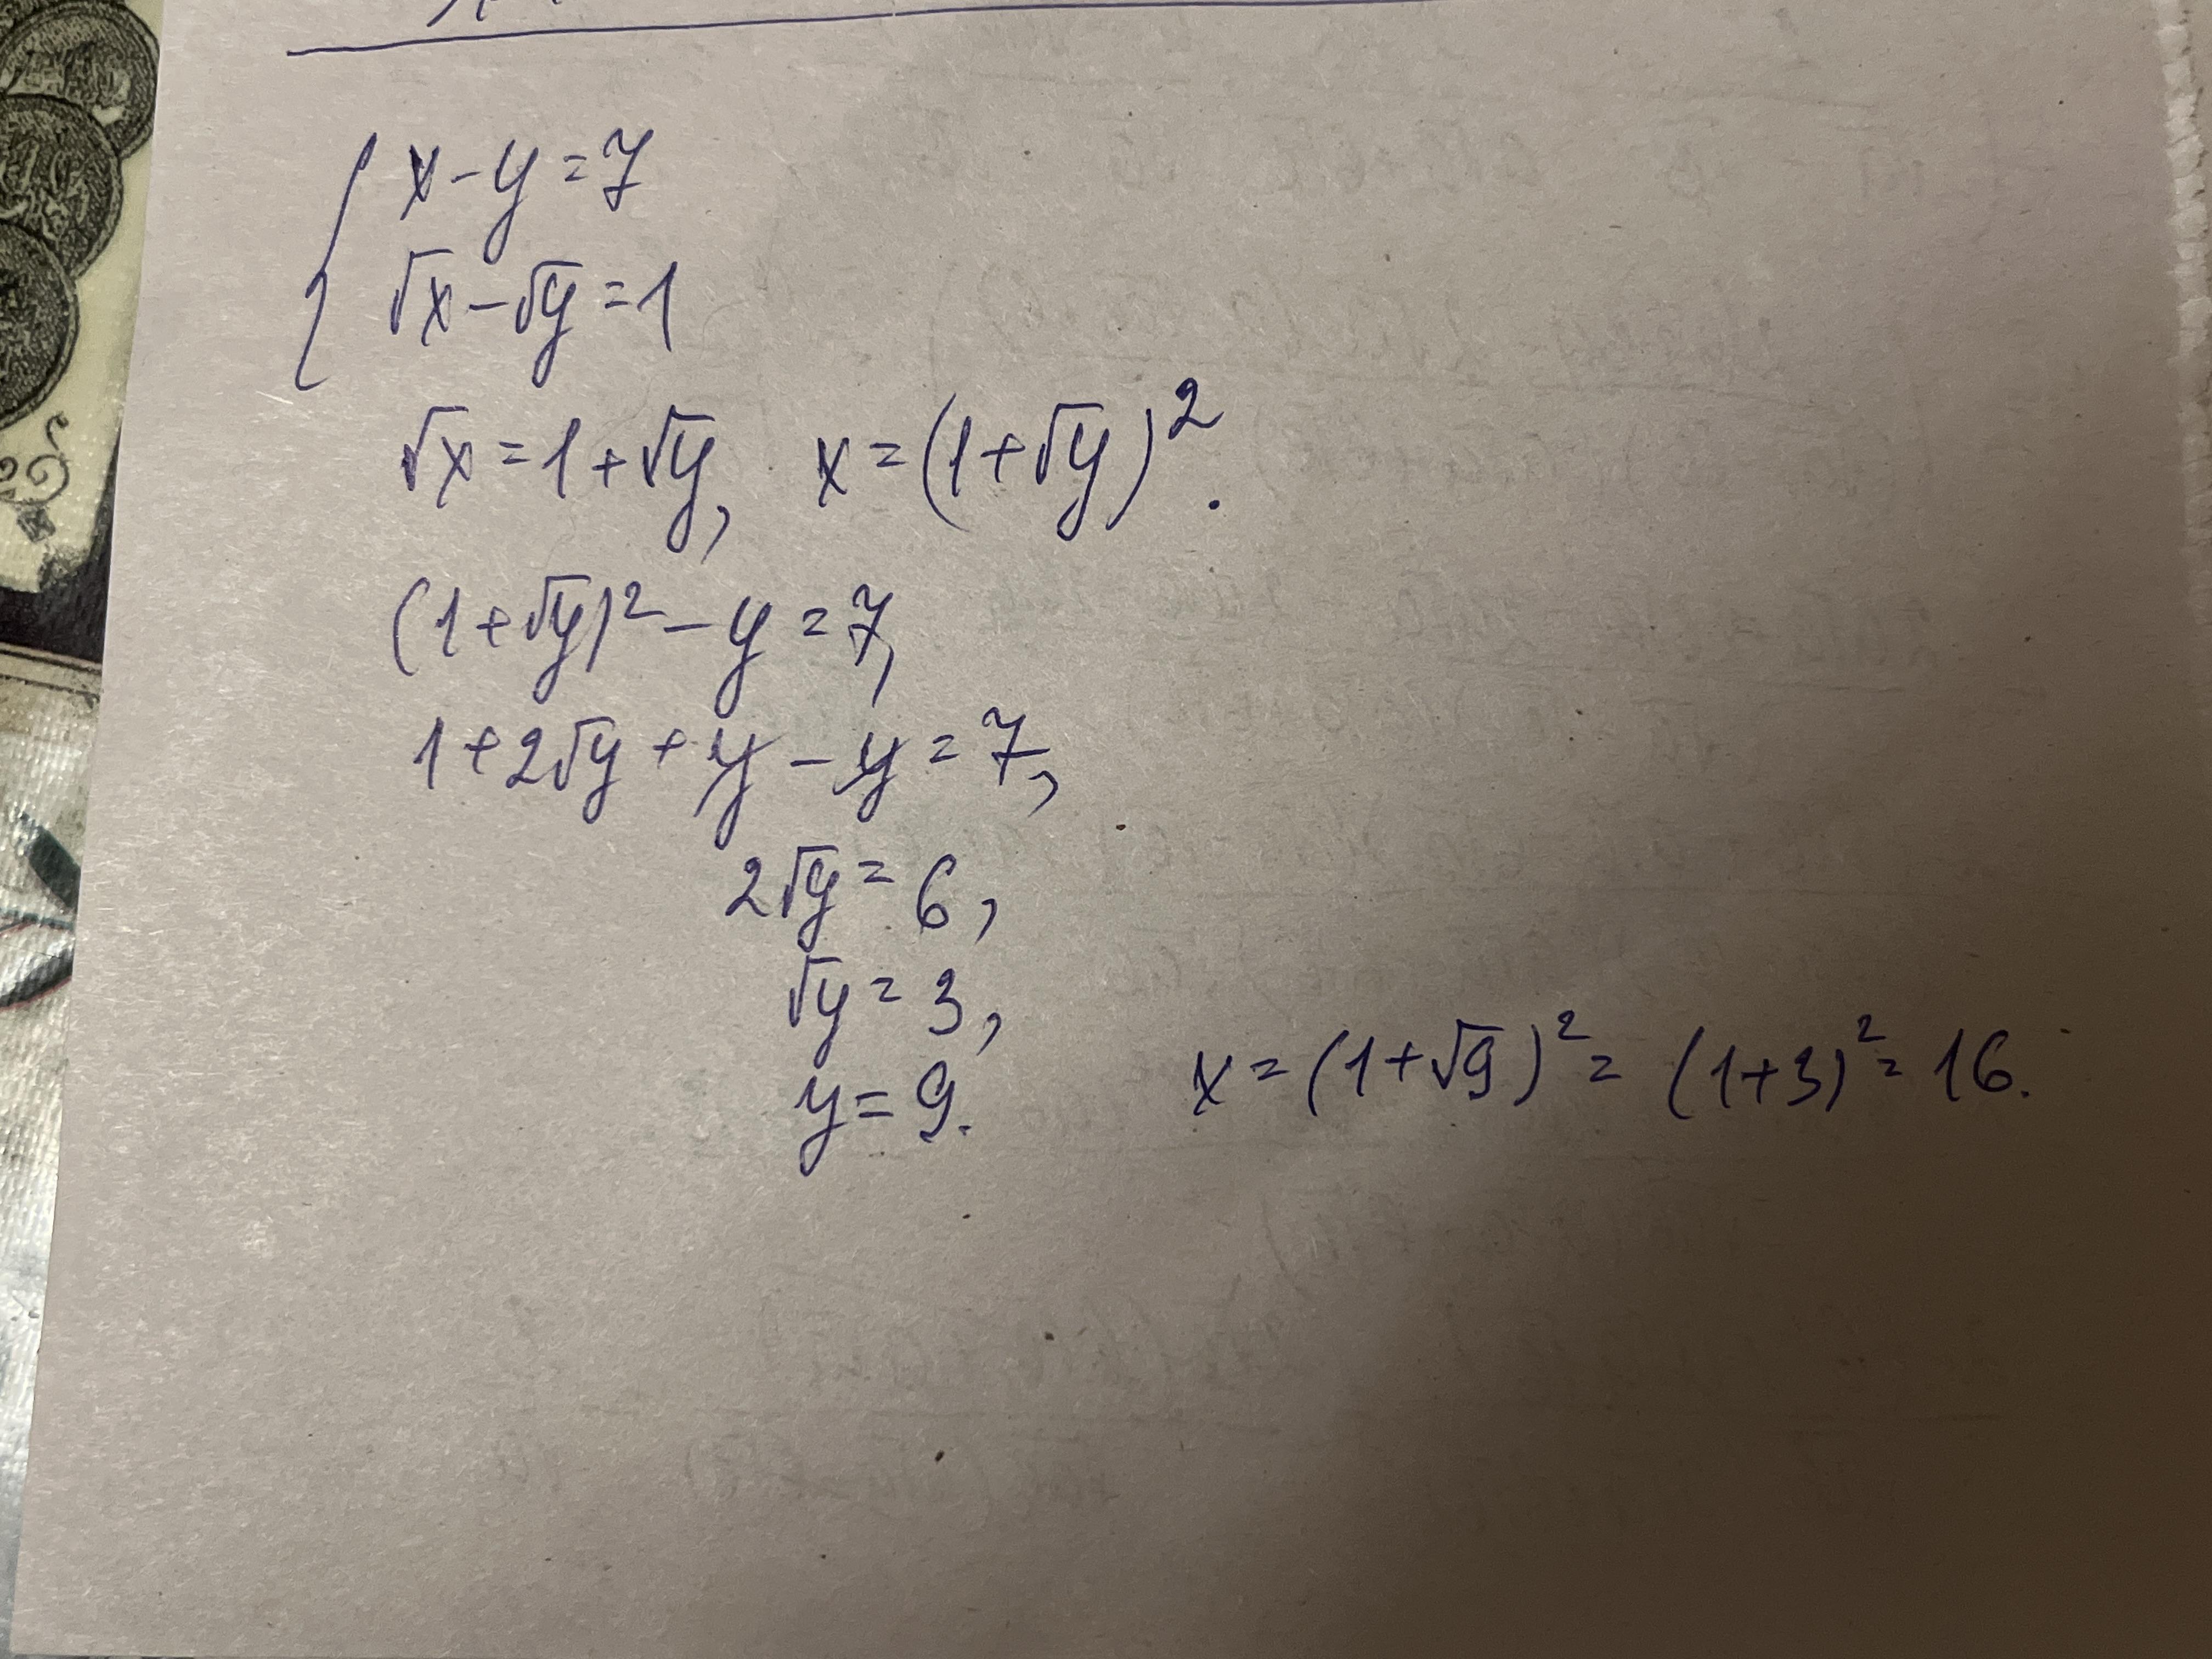 x-y=7
√x-√y=1
√x=1+√y, x=(1+√y)².
(1+√y)²-y=7,
1+2√y+y-y=7,
2√y=6,
√y=3,
y=9. x=(1+√9)²=(1+3)²=16.